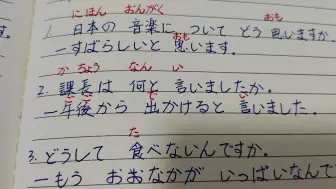 にほん おんがく おも
1. 日本の 音楽に ついて どう 思いますか.
おも
ーすばらしいと 思います.
かちょう なん い
2. 課長は 何と 言いましたか.
ー年後から 出かけると 言いました.
た
3. どうして 食べないんですか.
ーもう おおなかが いっぱいなんで